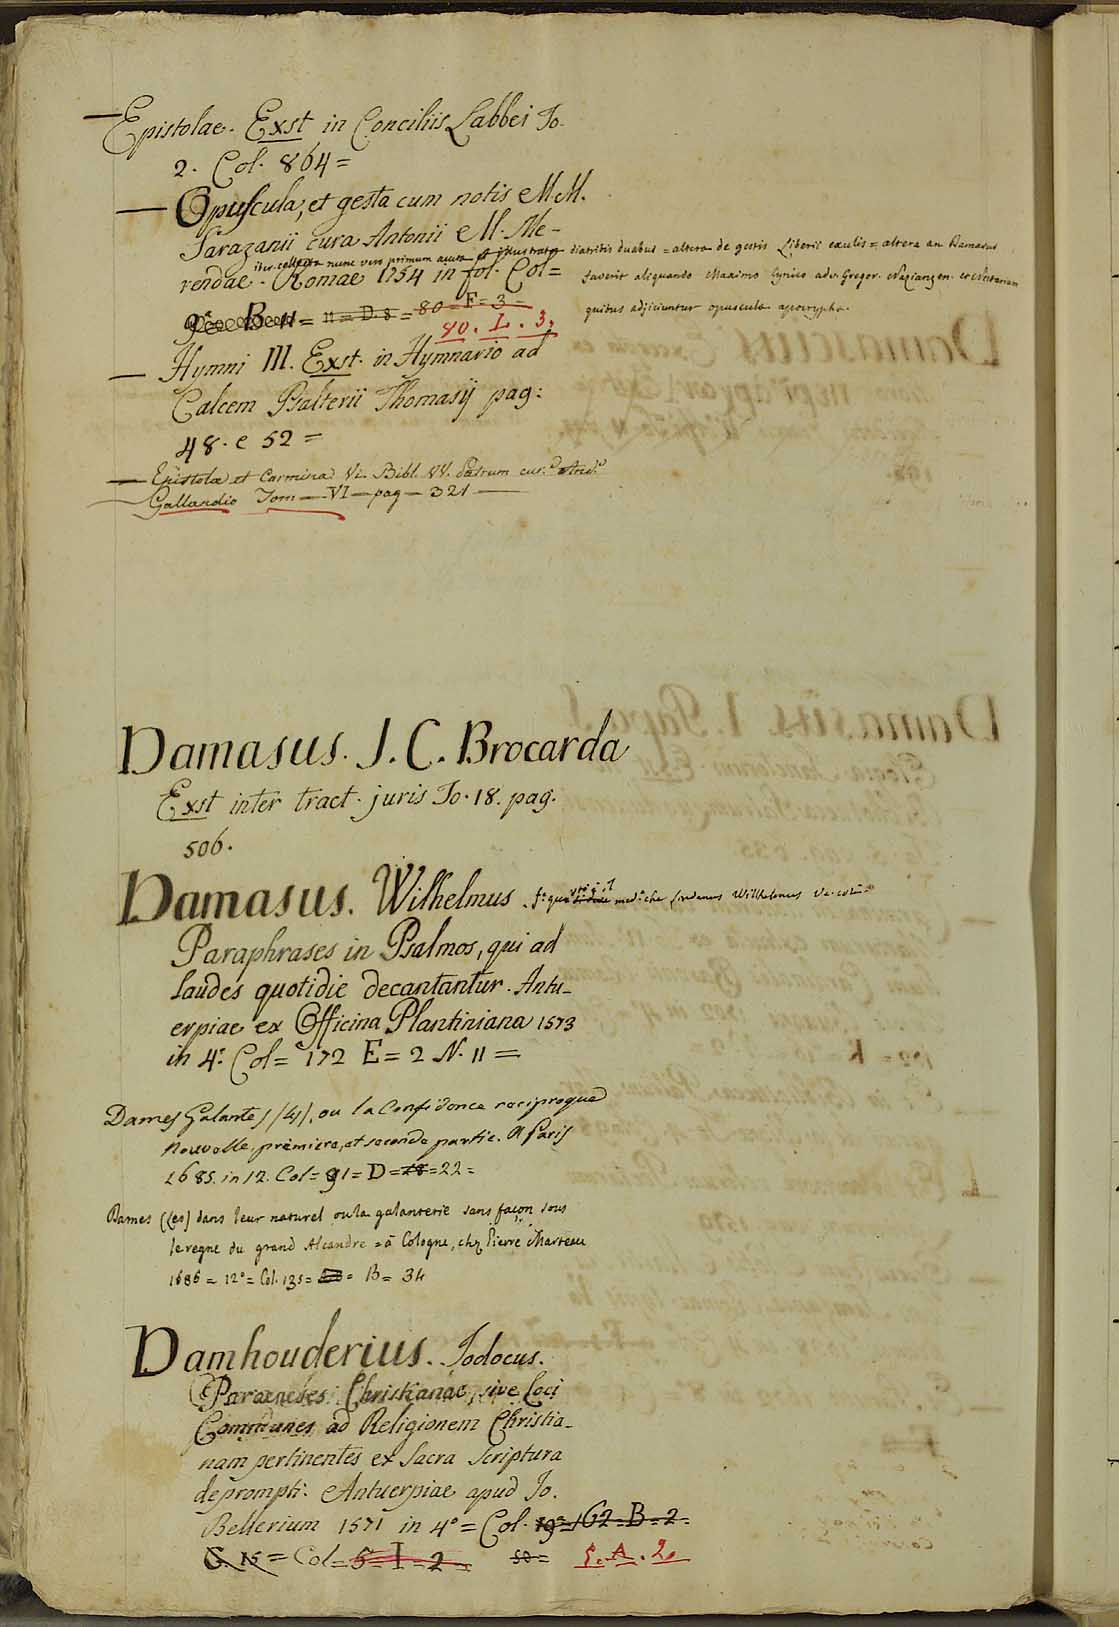 — Epistolae. Exst in Conciliis Labbei To.
2. Col. 864 =
— Opuscula, et gesta cum notis M. M.
Sarazanii cura Antonii M. Me-
iter. collecta nunc vero primum aucta et illustrata diatribis duabus = altera de gestis Liberii exulis = altera an Damasus
rendae. Romae 1754 in fol. Col =
faverit aliquando Maximo Cynico adv. Gregor. Nazianzen. et Nectarium
quibus adjiciuntur opuscula apocrypha.
B = 11 = D. 8 = 80 = F = 3 =
80. L. 3.
— Hymni III. Exst. in Hymnario ad
Calcem Psalterii Thomasij pag:
48. e 52 =
— Epistolae et Carmina Vi. Bibl. VV. Patrum cur.
Gallandio Tom — VI — pag — 321 —
Damasus. J. C. Brocarda
Exst inter tract. juris To. 18. pag.
506.
Damasus. Wilhelmus
Paraphrases in Psalmos, qui ad
laudes quotidie decantantur. Antu-
erpiae ex Officina Plantiniana 1573
in 4.° Col = 172 E = 2 N. 11 =
Dames Galantes (les), ou la Confidence reciproque
Nouvelle, premiere, et seconde partie. A Paris
1685. in 12. Col = 91 = D = 18 = 22 =
Dames (les) dans leur naturel ou la galanterie sans façon sous
le regne du grand Alcandre = à Cologne, chez Pierre Marteau
1686 = 12° = Col. 135 = B = 34
Damhouderius. Jodocus.
Paraeneses Christianae, sive Loci
Communes ad Religionem Christia-
nam pertinentes ex Sacra Scriptura
deprompti. Antuerpiae apud Jo.
Bellerium 1571 in 4° = Col. 19 = 162 = B = 2 =
C. 15 = Col = 5 = I = 2 = 50 = 5. A. 2